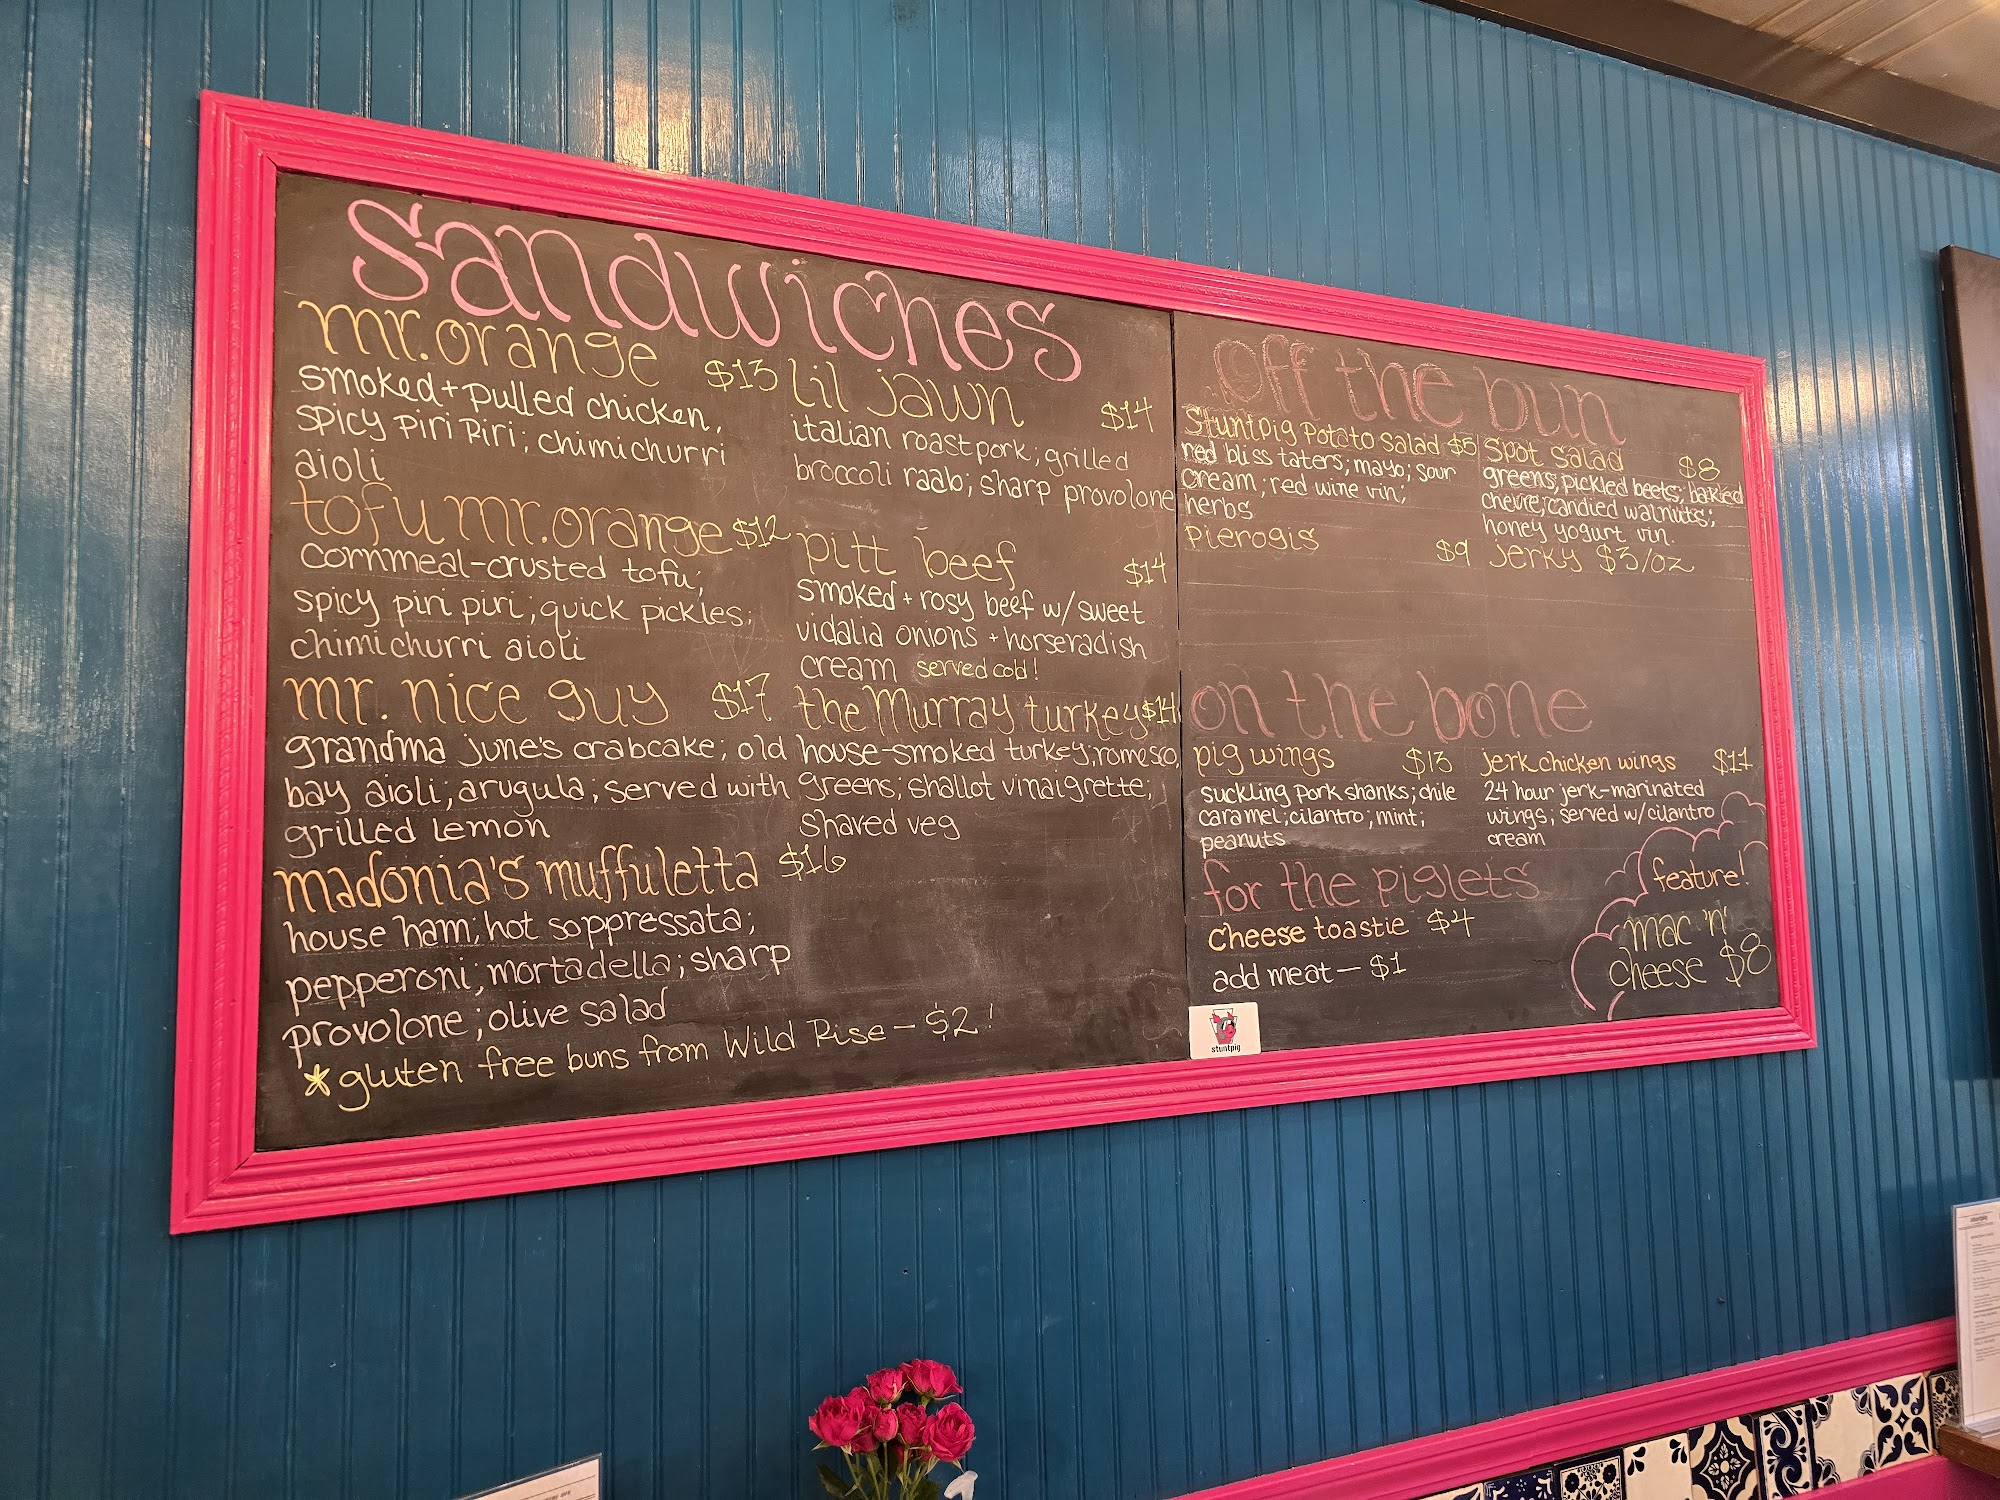 sandwiches
mr. orange $13
smoked + pulled chicken,
spicy piri piri; chimichurri
aioli
tofu mr. orange $12
cornmeal-crusted tofu;
spicy piri piri; quick pickles;
chimichurri aioli
mr. nice guy $17
grandma june's crabcake; old
bay aioli; arugula; served with
grilled lemon
madonia's muffuletta $16
house ham; hot soppressata;
pepperoni; mortadella; sharp
provolone; olive salad
*gluten free buns from Wild Rise - $2!
lil jawn $14
italian roast pork; grilled
broccoli raab; sharp provolone
pitt beef $14
smoked + rosy beef w/ sweet
vidalia onions + horseradish
cream served cold!
the Murray turkey $14
house-smoked turkey; romesco,
greens; shallot vinaigrette;
shaved veg
off the bun
Stuntpig Potato Salad $5
red bliss taters; mayo; sour
cream; red wine vin;
herbs
Pierogis $9
Spot salad $8
greens; pickled beets; baked
chevre; candied walnuts;
honey yogurt vin.
Jerky $3/oz
on the bone
pig wings $13
suckling pork shanks; chile
caramel; cilantro; mint;
peanuts
jerk chicken wings $11
24 hour jerk-marinated
wings; served w/ cilantro
cream
for the piglets
cheese toastie $4
add meat - $1
feature!
mac 'n'
cheese $8
stuntpig